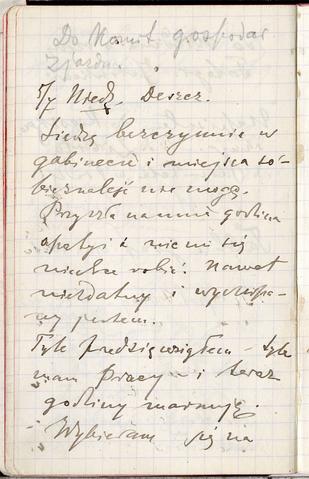 Do Komit. gospodar
Zjazdu.
5/7 Niedz. Deszcz.
Siedzę bezczynnie w
gabinecie i miejsca so-
bie znaleść nie mogę.
Przyszła na mnie godzina
apatyi i nic mi się
nie chce robić. Nawet
niezdatny i wyczerpa-
ny jestem.
Tyle przedsięwziąłem - tyle
mam pracy - i teraz
godziny marnuję.
- Wybieram się na